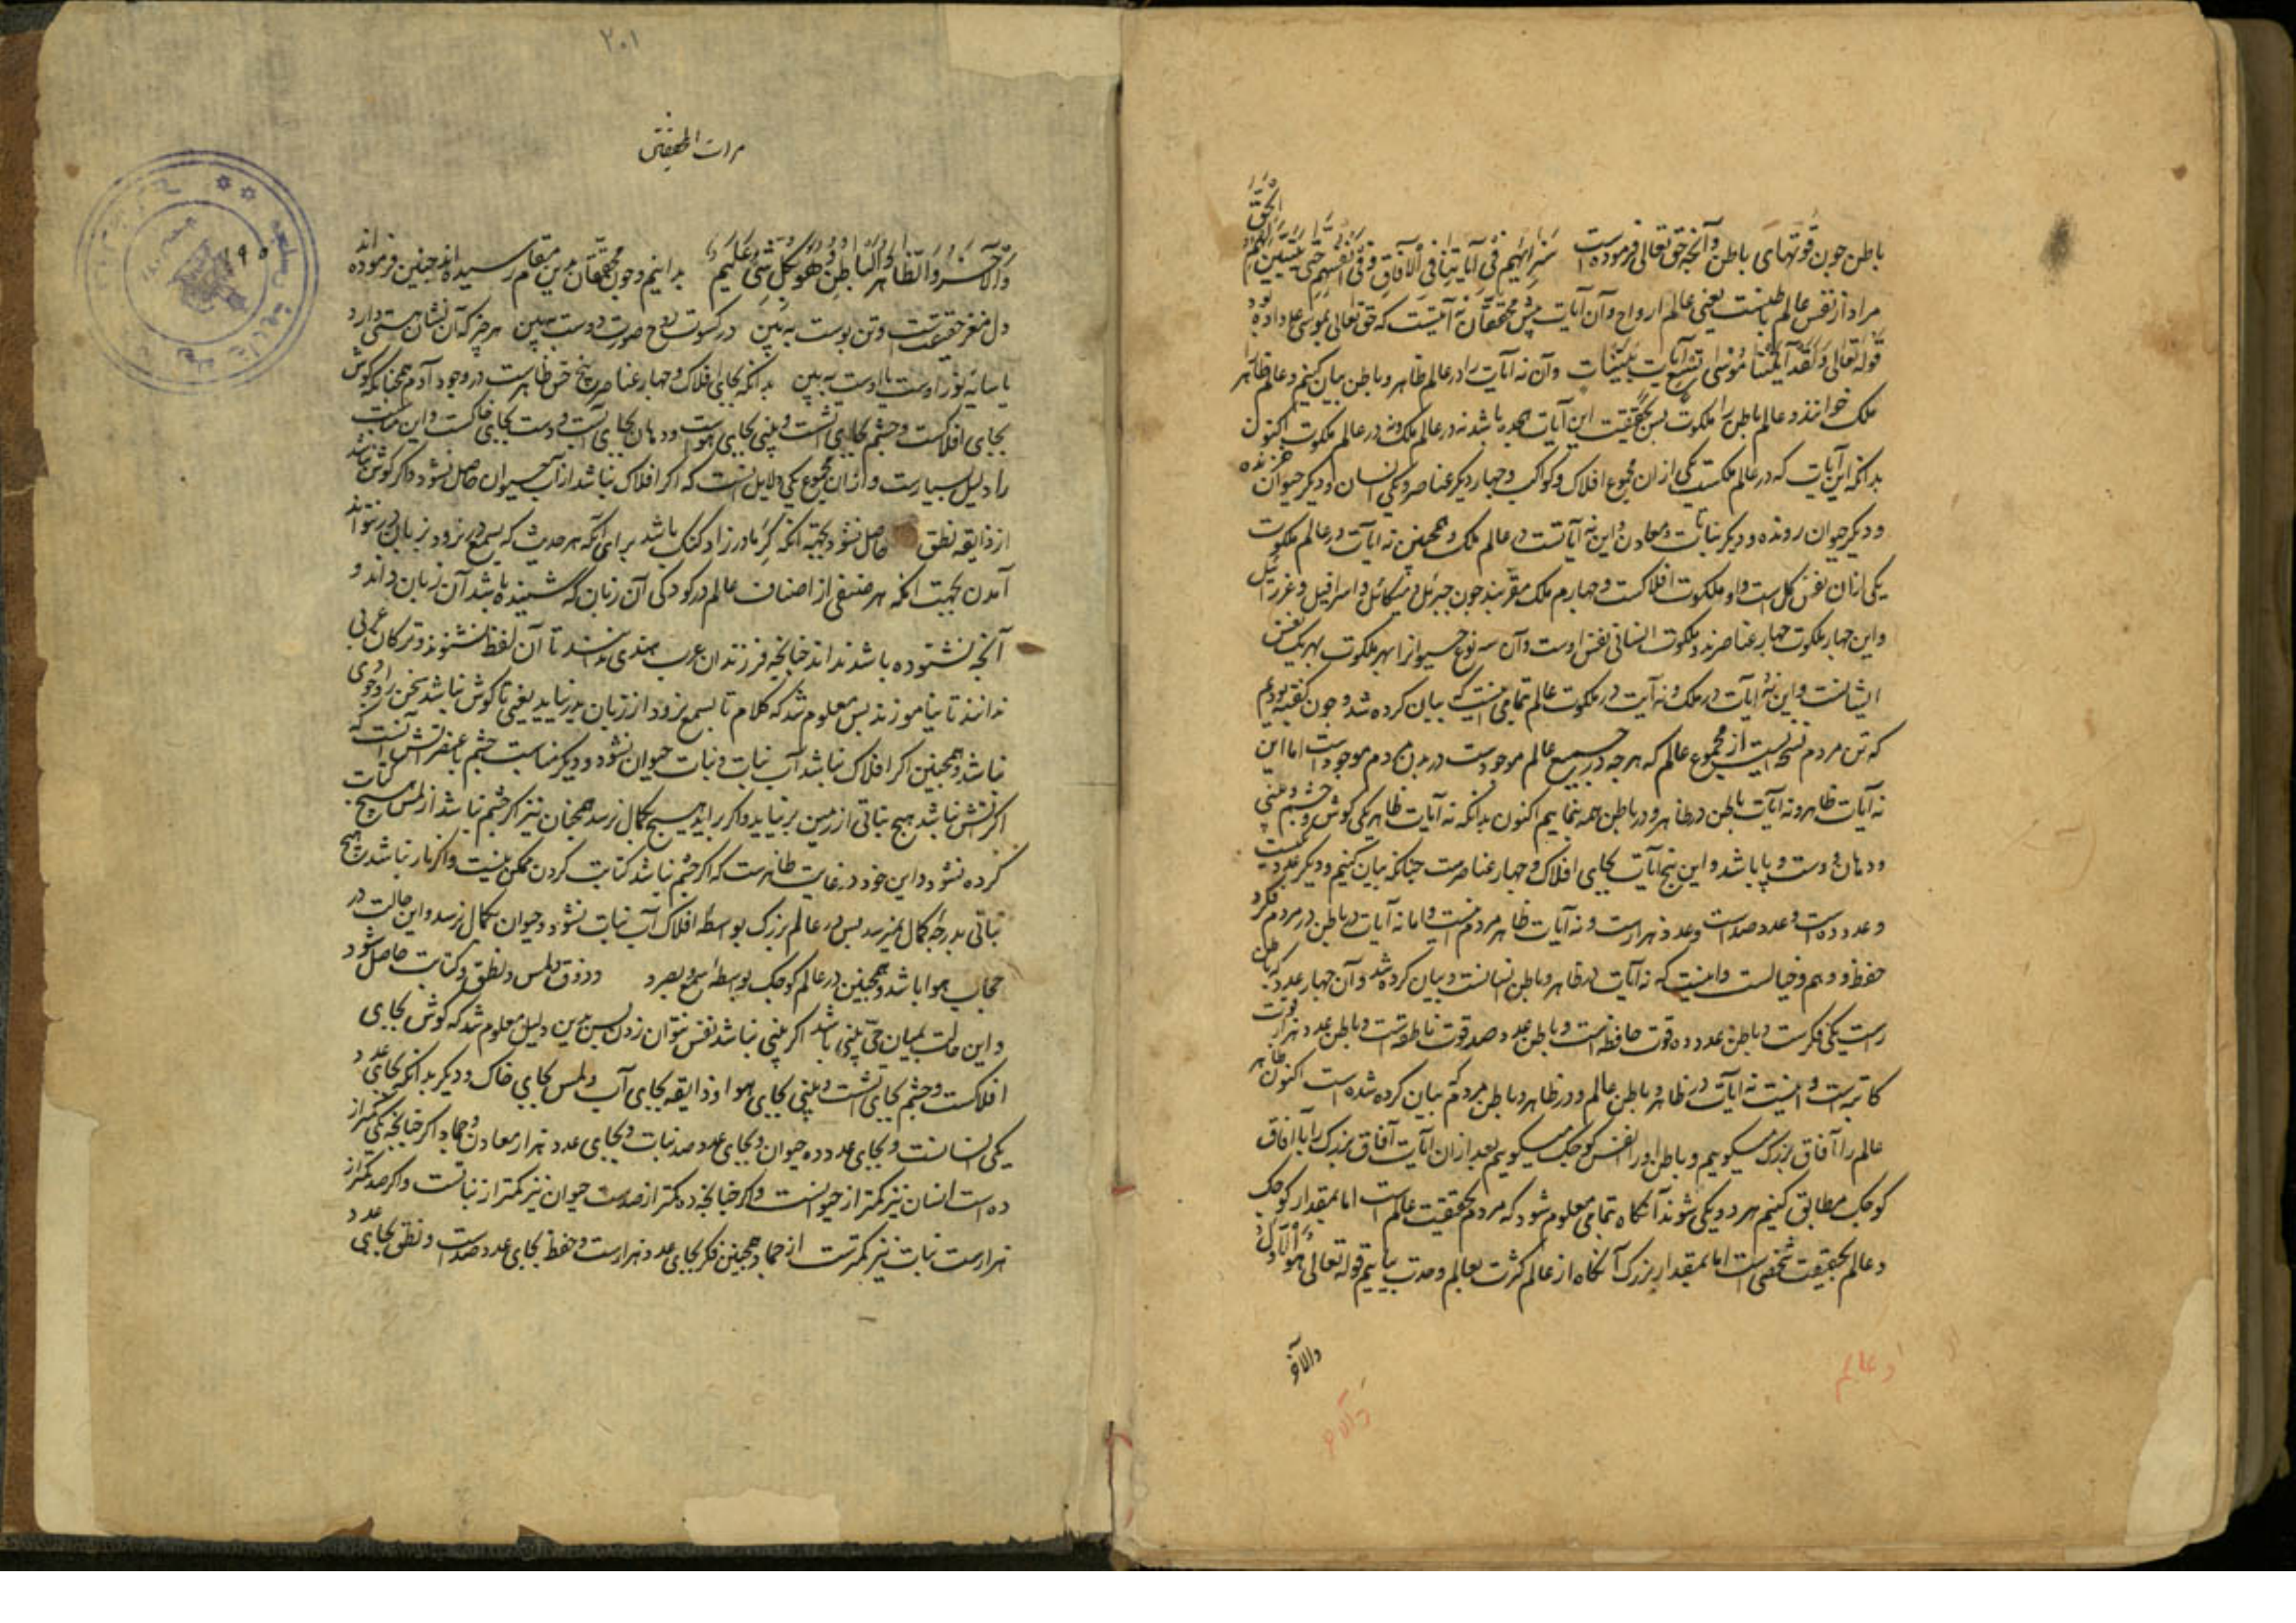 باطن چون قوتهای باطن و آنچه حق تعالی فرموده است سَنُرِیهِم فی آیاتِنا فِی الآفاقِ وَفی اَنفُسِهِم حَتّی یَتَبَیَّنَ لَهُم اَنَّهُ الحَقُّ
مراد از نفس عالم باطنست یعنی عالم ارواح و آن آیات پیش محققان نه آیتست که حق تعالی بموسی ع داده بود
قوله تعالی وَلَقَد آتَینا مُوسی تِسعَ آیاتٍ بَیِّناتٍ و آن نه آیات را در عالم ظاهر و باطن بیان کنیم و عالم ظاهر را
ملک خوانند و عالم باطن را ملکوت پس بحقیقت این آیات هجده باشد نه در عالم ملک و نه در عالم ملکوت اکنون
بدانکه این آیات که در عالم ملکست یکی از ان مجموع افلاک و کواکب و چهار دیگر عناصر و یکی انسان و دیگر حیوان پرنده
و دیگر حیوان رونده و دیگر نباتات و معادن و این نه آیاتست در عالم ملک و همچنین نه آیات در عالم ملکوت
یکی ازان نفس کل است و او ملکوت افلاکست و چهارم ملک مقربند چون جبرئیل و میکائل و اسرافیل و عزرائیل
و این چهار ملکوت چهار عناصرند و ملکوت انسانی نفس اوست و آن سه نوع حیوانرا سه ملکوت بهر یک نفس
ایشانست و این نه آیات در ملک و نه آیت در ملکوت عالم تمامی اینست که بیان کرده شد و چون گفته بودیم
که تن مردم نسخه ایست از مجموع عالم که هرچه در جمیع عالم موجودست در بدن مردم موجود است اما این
نه آیات ظاهر و نه آیات باطن در ظاهر و در باطن همه نماییم اکنون بدانکه نه آیات ظاهر یکی گوش و چشم و بینی
و دهان و دست و پا باشد و این پنج آیات بجای افلاک و چهار عناصرست چنانکه بیان کنیم و دیگر عدد یکیست
و عدد ده است و عدد صد است و عدد هزارست و نه آیات ظاهر مردم اینست و اما نه آیات در باطن در مردم فکر و
حفظ و وهم و خیالست و اینست که نه آیات در ظاهر و باطن انسانست و بیان کرده شد و آن چهار عدد که باطن
راست یکی فکرست و باطن عدد ده قوت حافظه است و باطن عدد صد قوت ناطقه است و باطن عدد هزار قوت
کاتبه است و اینست نه آیات در ظاهر و باطن عالم و در ظاهر و باطن مردم که بیان کرده شده است اکنون ظاهر
عالم را آفاق بزرگ میگوییم و باطن او را نفس کوچک میگوییم بعد از ان آیات آفاق بزرگ را با آفاق
کوچک مطابق کنیم هر دو یکی شوند آنگاه تمامی معلوم شود که مردم بحقیقت عالم است اما بمقدار کوچک
و عالم بحقیقت شخصی است اما بمقدار بزرگ آنگاه از عالم کثرت بعالم وحدت بیاییم قوله تعالی هُوَ الاَوَّلُ
والآخر
والآخر
و عالم
٢٠١
مرات المحققین
١٩٥
وَالآخِرُ وَالظّاهِرُ وَالباطِنُ وَهُوَ بِکُلِّ شَیءٍ عَلیم بدانیم و چون محققان بدین مقام رسیده اند چنین فرموده اند
دل مغز حقیقتست و تن پوست ببین در کسوت روح صورت دوست ببین هر چیز که آن نشان هستی دارد
یا سایه نور اوست یا اوست ببین بدانکه بجای افلاک و چهار عناصر پنج حس ظاهرست در وجود آدم همچنانکه گوش
بجای افلاکست و چشم بجای آتشست و بینی بجای هواست و دهان بجای آبست و دست بجای خاکست و این مناسبت
را دلیل بسیارست و از ان مجموع یکی دلایل اینست که اگر افلاک نباشد از آب حیوان حاصل نشود و اگر گوش نباشد
از ذایقه نطق حاصل نشود بجهة آنکه کر مادرزاد گنگ باشد برای آنکه هر حدیث که بسمع نرود بزبان در نتواند
آمدن بجهت آنکه هر صنفی از اصناف عالم در کودکی آن زبان که شنیده باشد آن زبان داند و
آنچه نشنوده باشد نداند چنانچه فرزندان عرب هندی ندانند تا آن لفظ نشنوند و ترکان عربی
ندانند تا نیاموزند پس معلوم شد که کلام تا بسمع نرود از زبان بدر نیاید یعنی تا گوش نباشد سخن را وجودی
نباشد و همچنین اگر افلاک نباشد آب نبات و نبات حیوان نشود و دیگر مناسبت چشم با عنصر آتش آنست که
اگر آتش نباشد هیچ نباتی از زمین بر نیاید و اگر براید هیچ بکمال نرسد همچنان نیز اگر چشم نباشد از لمس هیچ کتابت
کرده نشود و این خود در غایت ظاهرست که اگر چشم نباشد کتابت کردن ممکن نیست و اگر نار نباشد هیچ
نباتی بدرجه کمال نمیرسد پس در عالم بزرگ بواسطه افلاک آب نبات نشود و حیوان بکمال نرسد و این حالت در
حجاب هوا باشد و همچنین در عالم کوچک بواسطه سمع و بصر و ذوق و لمس و نطق و کتابت حاصل شود
و این حالت بمیان حی بینی باشد اگر بینی نباشد نفس نتوان زدن پس بدین دلیل معلوم شد که گوش بجای
افلاکست و چشم بجای آتشست و بینی بجای هوا و ذایقه بجای آب و لمس بجای خاک و دیگر بدانکه بجای عدد
یکی انسانست و بجای عدد ده حیوان و بجای عدد صد نبات و بجای عدد هزار معادن و جماد اگر چنانچه یکی کمتر از
ده است انسان نیز کمتر از حیوانست و اگر چنانچه ده کمتر از صدست حیوان نیز کمتر از نباتست و اگر صد کمتر از
هزارست نبات نیز کمترست از جماد و همچنین فکر بجای عدد هزارست و حفظ بجای عدد صد است و نطق بجای عدد